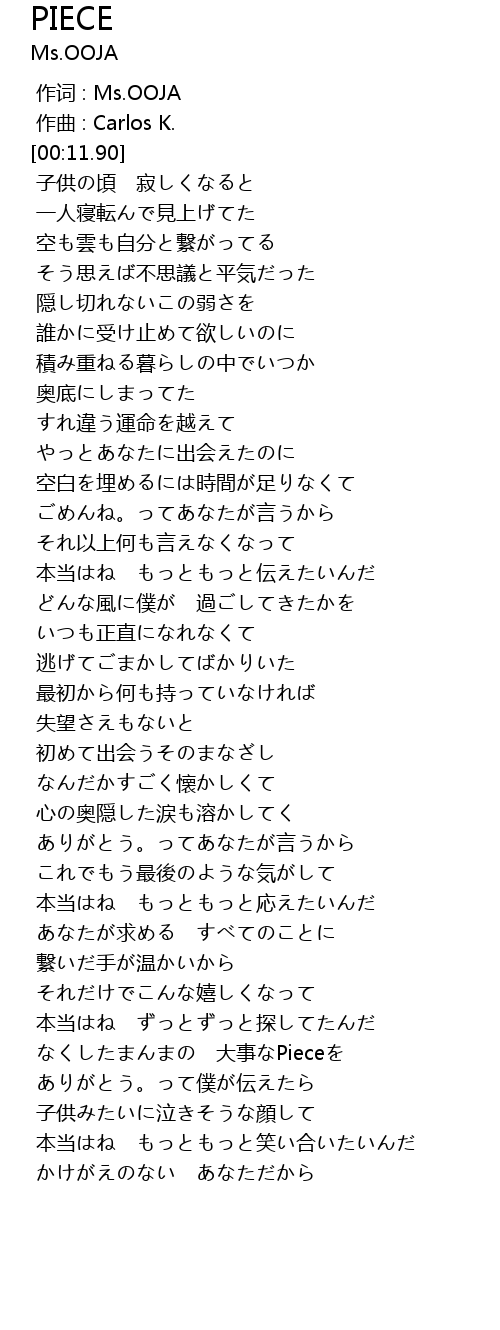 PIECE
Ms.OOJA
作词 : Ms.OOJA
作曲 : Carlos K.
[00:11.90]
子供の頃　寂しくなると
一人寝転んで見上げてた
空も雲も自分と繋がってる
そう思えば不思議と平気だった
隠し切れないこの弱さを
誰かに受け止めて欲しいのに
積み重ねる暮らしの中でいつか
奥底にしまってた
すれ違う運命を越えて
やっとあなたに出会えたのに
空白を埋めるには時間が足りなくて
ごめんね。ってあなたが言うから
それ以上何も言えなくなって
本当はね　もっともっと伝えたいんだ
どんな風に僕が　過ごしてきたかを
いつも正直になれなくて
逃げてごまかしてばかりいた
最初から何も持っていなければ
失望さえもないと
初めて出会うそのまなざし
なんだかすごく懐かしくて
心の奥隠した涙も溶かしてく
ありがとう。ってあなたが言うから
これでもう最後のような気がして
本当はね　もっともっと応えたいんだ
あなたが求める　すべてのことに
繋いだ手が温かいから
それだけでこんな嬉しくなって
本当はね　ずっとずっと探してたんだ
なくしたまんまの　大事なPieceを
ありがとう。って僕が伝えたら
子供みたいに泣きそうな顔して
本当はね　もっともっと笑い合いたいんだ
かけがえのない　あなただから